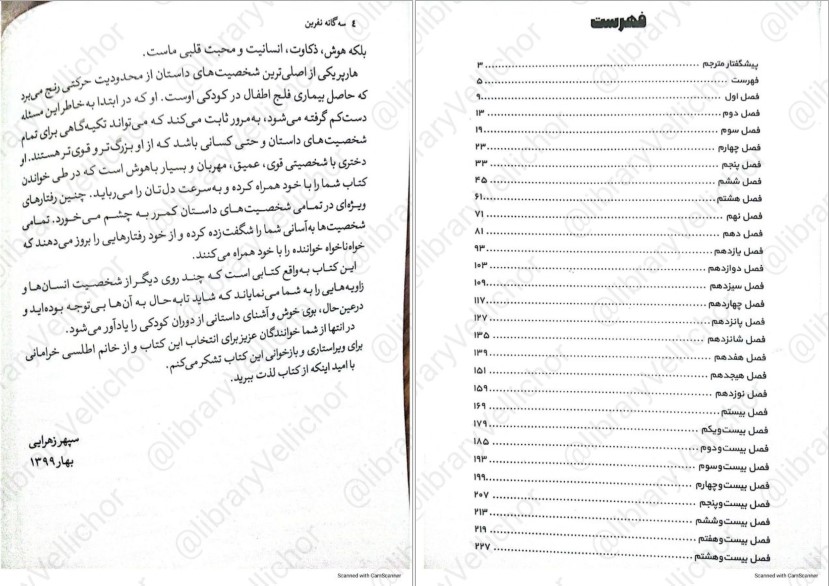 ۴ سه‌گانه نفرین
بلکه هوش، ذکاوت، انسانیت و محبت قلبی ماست.
هارپر یکی از اصلی‌ترین شخصیت‌های داستان از محدودیت حرکتی رنج می‌برد
که حاصل بیماری فلج اطفال در کودکی اوست. او که در ابتدا به خاطر این مسئله
دست‌کم گرفته می‌شود، به‌مرور ثابت می‌کند که می‌تواند تکیه‌گاهی برای تمام
شخصیت‌های داستان و حتی کسانی باشد که از او بزرگ‌تر و قوی‌تر هستند. او
دختری با شخصیتی قوی، عمیق، مهربان و بسیار باهوش است که در طی خواندن
کتاب شما را با خود همراه کرده و به‌سرعت دل‌تان را می‌رباید. چنین رفتارهای
ویژه‌ای در تمامی شخصیت‌های داستان کمرر به چشم می‌خورد. تمامی
شخصیت‌ها به‌آسانی شما را شگفت‌زده کرده و از خود رفتارهایی را بروز می‌دهند که
خواه‌ناخواه خواننده را با خود همراه می‌کنند.
این کتاب به‌واقع کتابی است که چند روی دیگر از شخصیت انسان‌ها و
زاویه‌هایی را به شما می‌نمایاند که شاید تابه‌حال به آن‌ها بی‌توجه بوده‌اید و
درعین‌حال، بوی خوش و آشنای داستانی از دوران کودکی را یادآور می‌شود.
در انتها از شما خوانندگان عزیز برای انتخاب این کتاب و از خانم اطلسی خرامانی
برای ویراستاری و بازخوانی این کتاب تشکر می‌کنم.
با امید اینکه از کتاب لذت ببرید.
سپهر زهرایی
بهار ۱۳۹۹
Scanned with CamScanner
فهرست
پیشگفتار مترجم ۳
فهرست ۵
فصل اول ۹
فصل دوم ۱۳
فصل سوم ۱۹
فصل چهارم ۲۳
فصل پنجم ۳۳
فصل ششم ۴۵
فصل هشتم ۶۱
فصل نهم ۷۱
فصل دهم ۸۱
فصل یازدهم ۹۳
فصل دوازدهم ۱۰۳
فصل سیزدهم ۱۰۹
فصل چهاردهم ۱۱۷
فصل پانزدهم ۱۲۷
فصل شانزدهم ۱۳۵
فصل هفدهم ۱۳۹
فصل هیجدهم ۱۵۱
فصل نوزدهم ۱۵۹
فصل بیستم ۱۶۹
فصل بیست‌ویکم ۱۷۹
فصل بیست‌ودوم ۱۸۵
فصل بیست‌وسوم ۱۹۳
فصل بیست‌وچهارم ۱۹۹
فصل بیست‌وپنجم ۲۰۷
فصل بیست‌وششم ۲۱۳
فصل بیست‌وهفتم ۲۱۹
فصل بیست‌وهشتم ۲۲۷
Scanned with CamScanner
@libraryVellichor